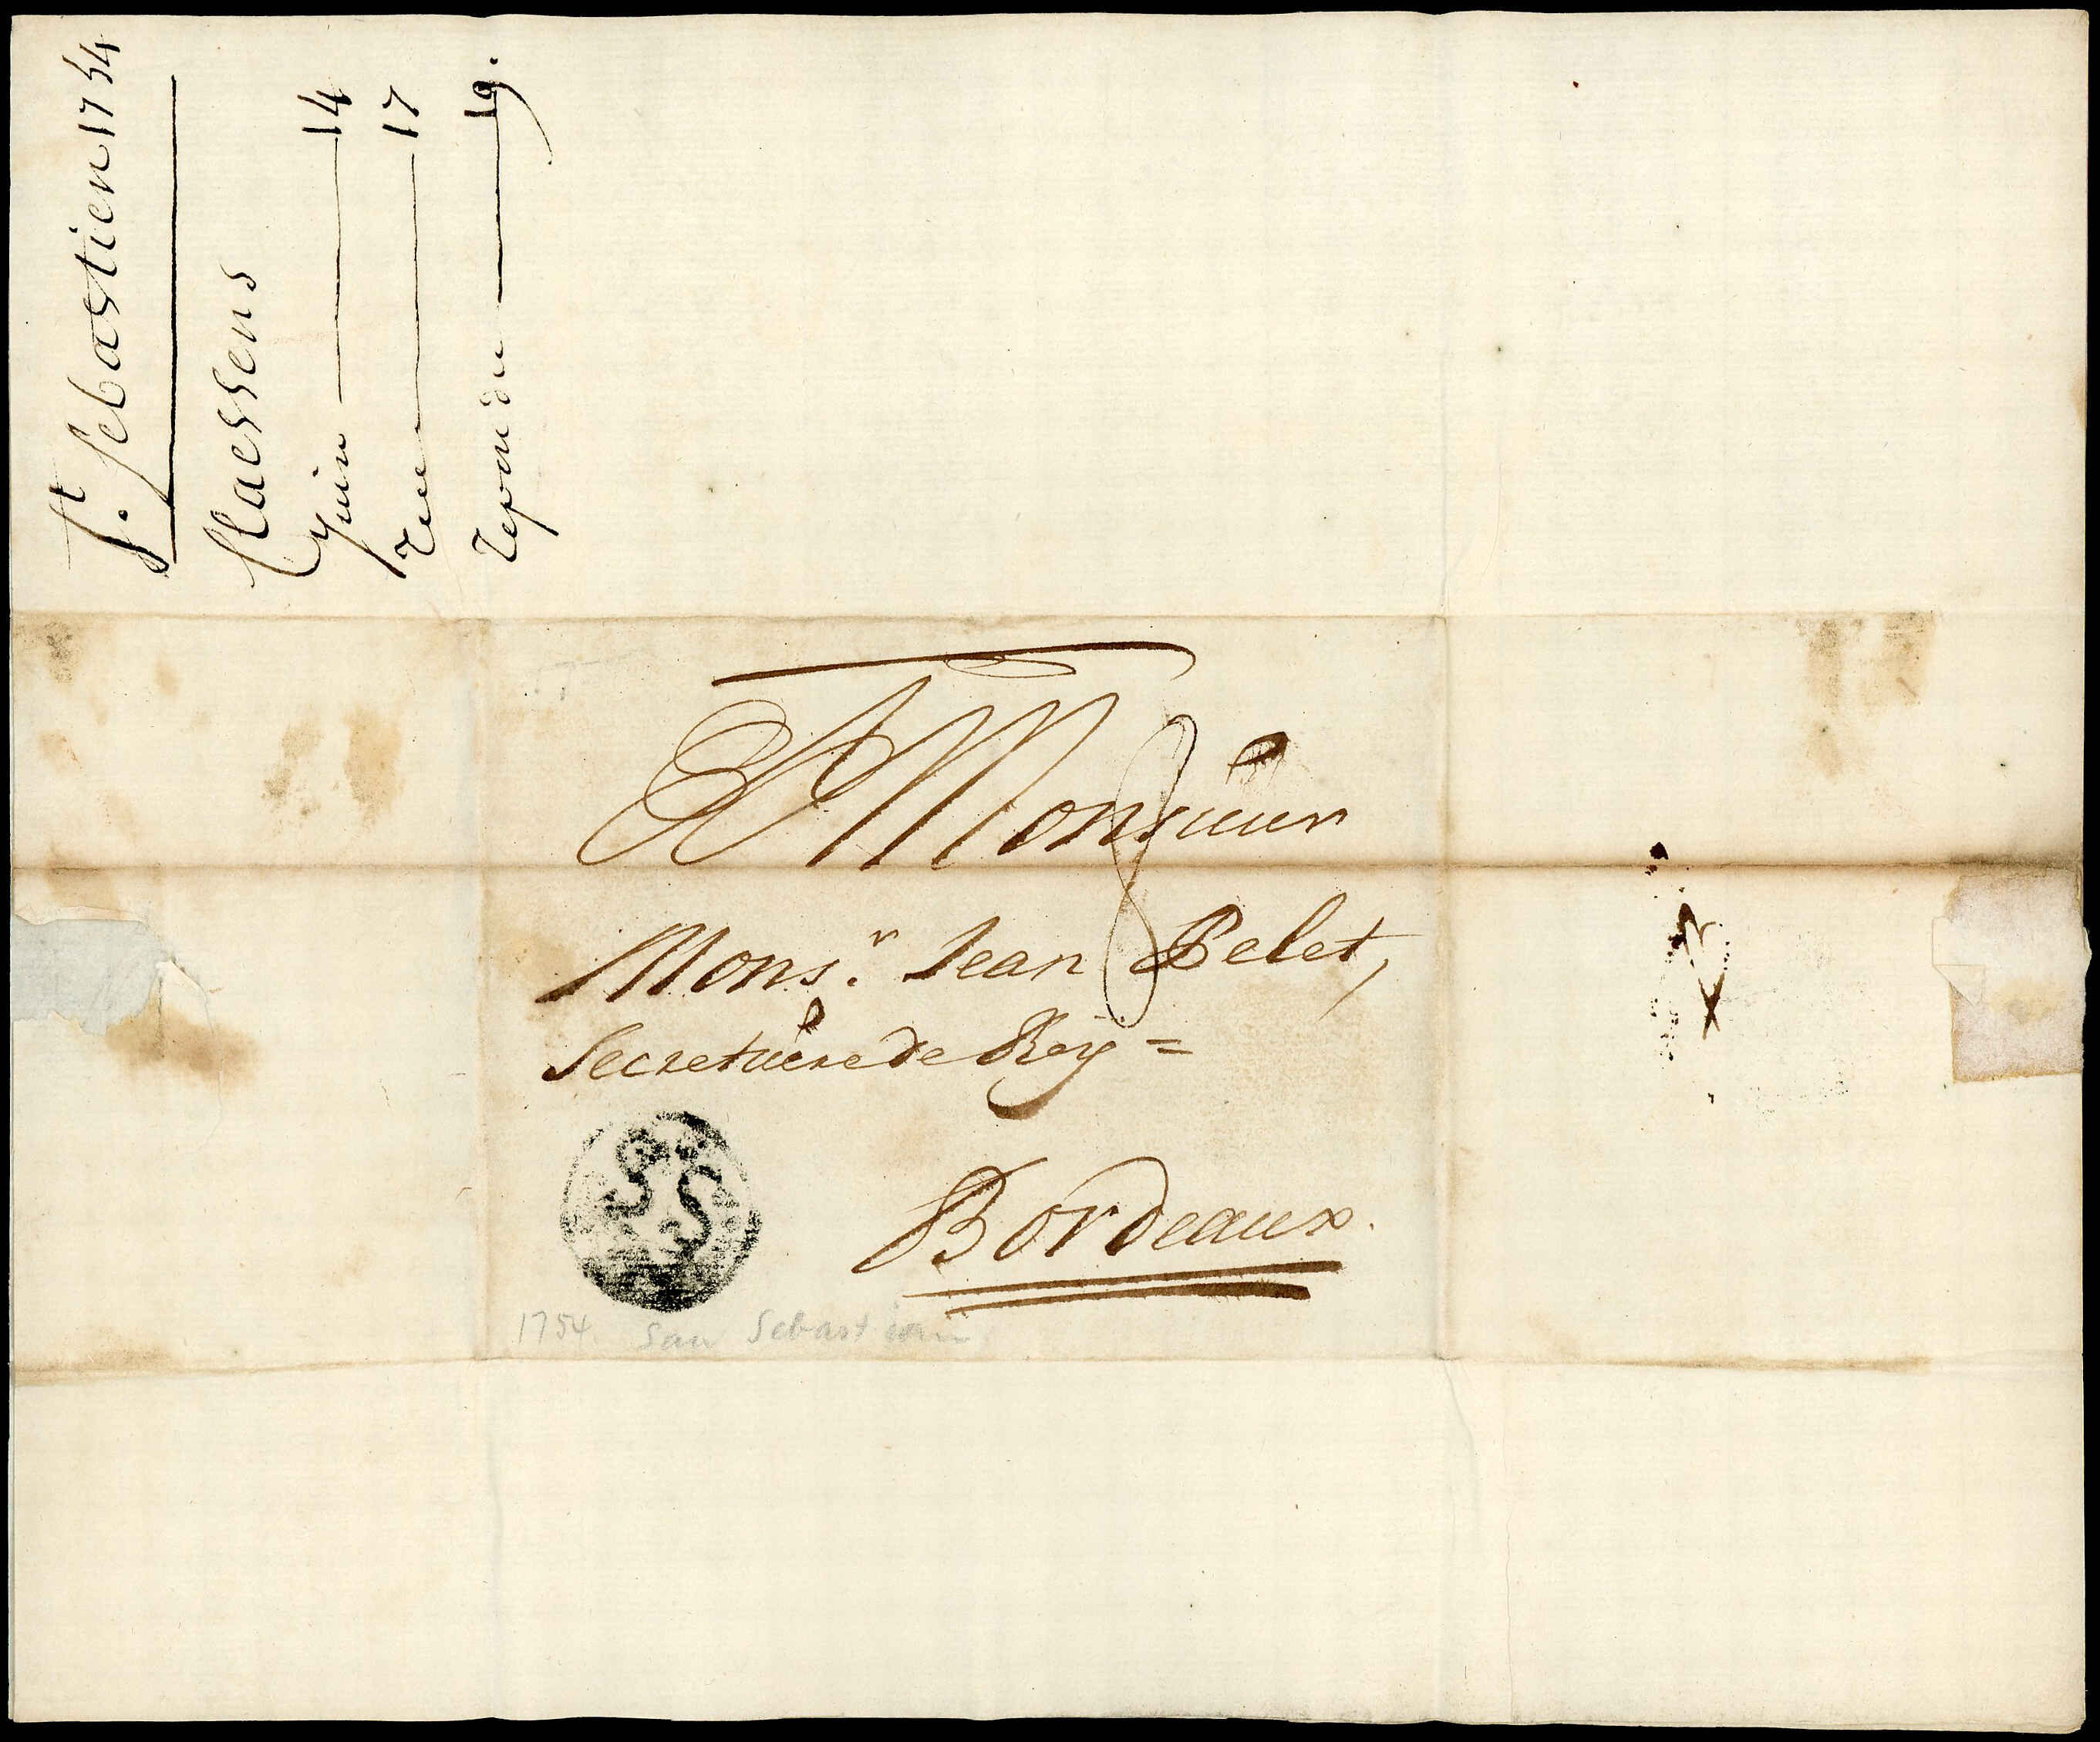 St. Sebastien 1754
Claessens
Juin 14
Reçu 17
Reponidu 19.
A Monsieur
8
Monsr. Jean Pelet,
Secretaire de Roy =
SS
Bordeaux.
1754 San Sebastian